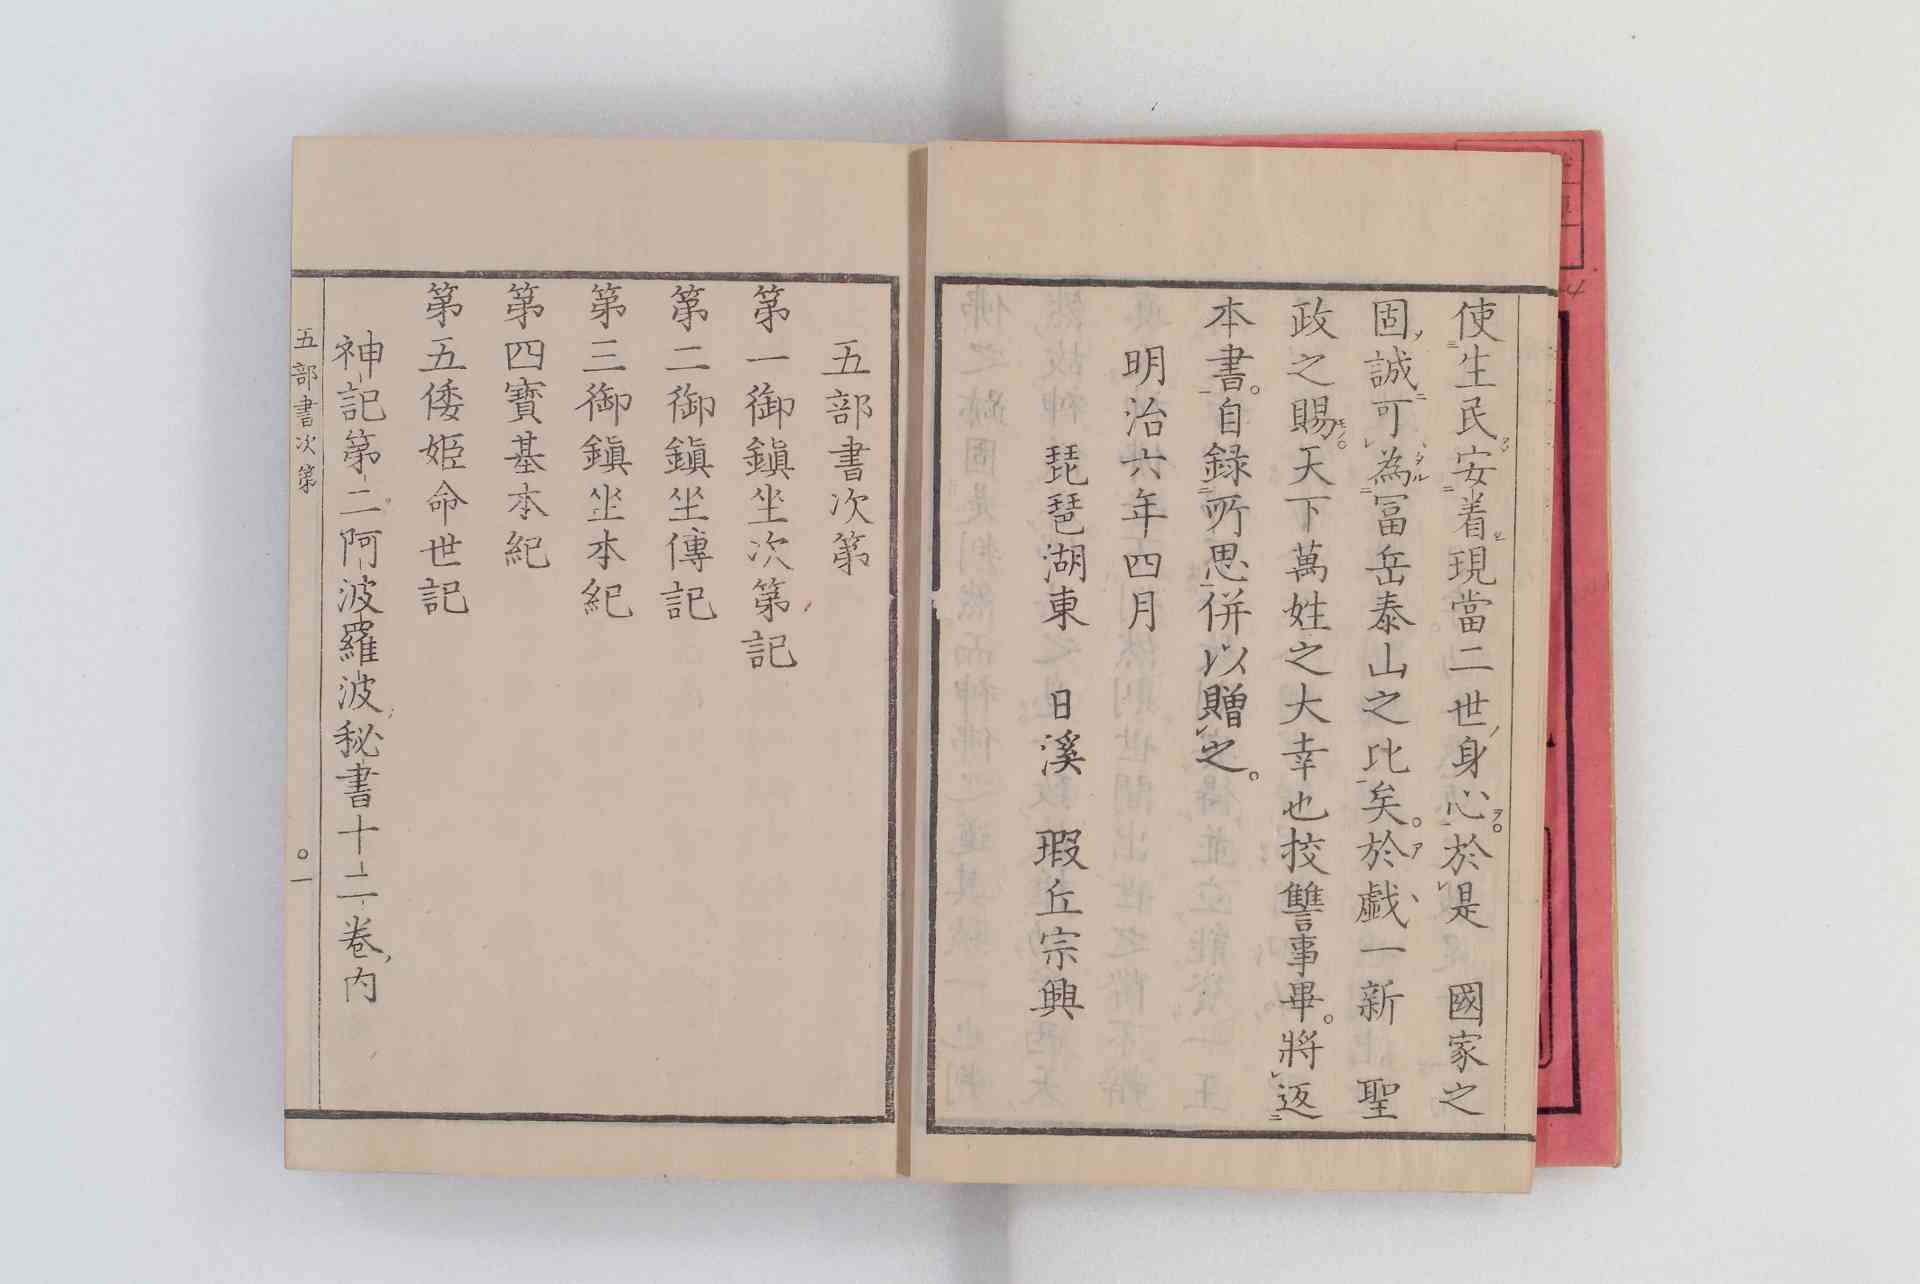 使生民安着現當二世身心於是　國家之
固誠可為冨岳泰山之比矣於戯一新　聖
政之賜天下萬姓之大幸也挍讐事畢將返
本書自録所思併以贈之
明治六年四月
琵琶湖東　日溪　瑕丘宗興
五部書次第
第一御鎭坐次第記
第二御鎭坐傳記
第三御鎭坐本紀
第四寶基本紀
第五倭姫命世記
神記第二阿波羅波秘書十二卷内
五部書次第　〇一